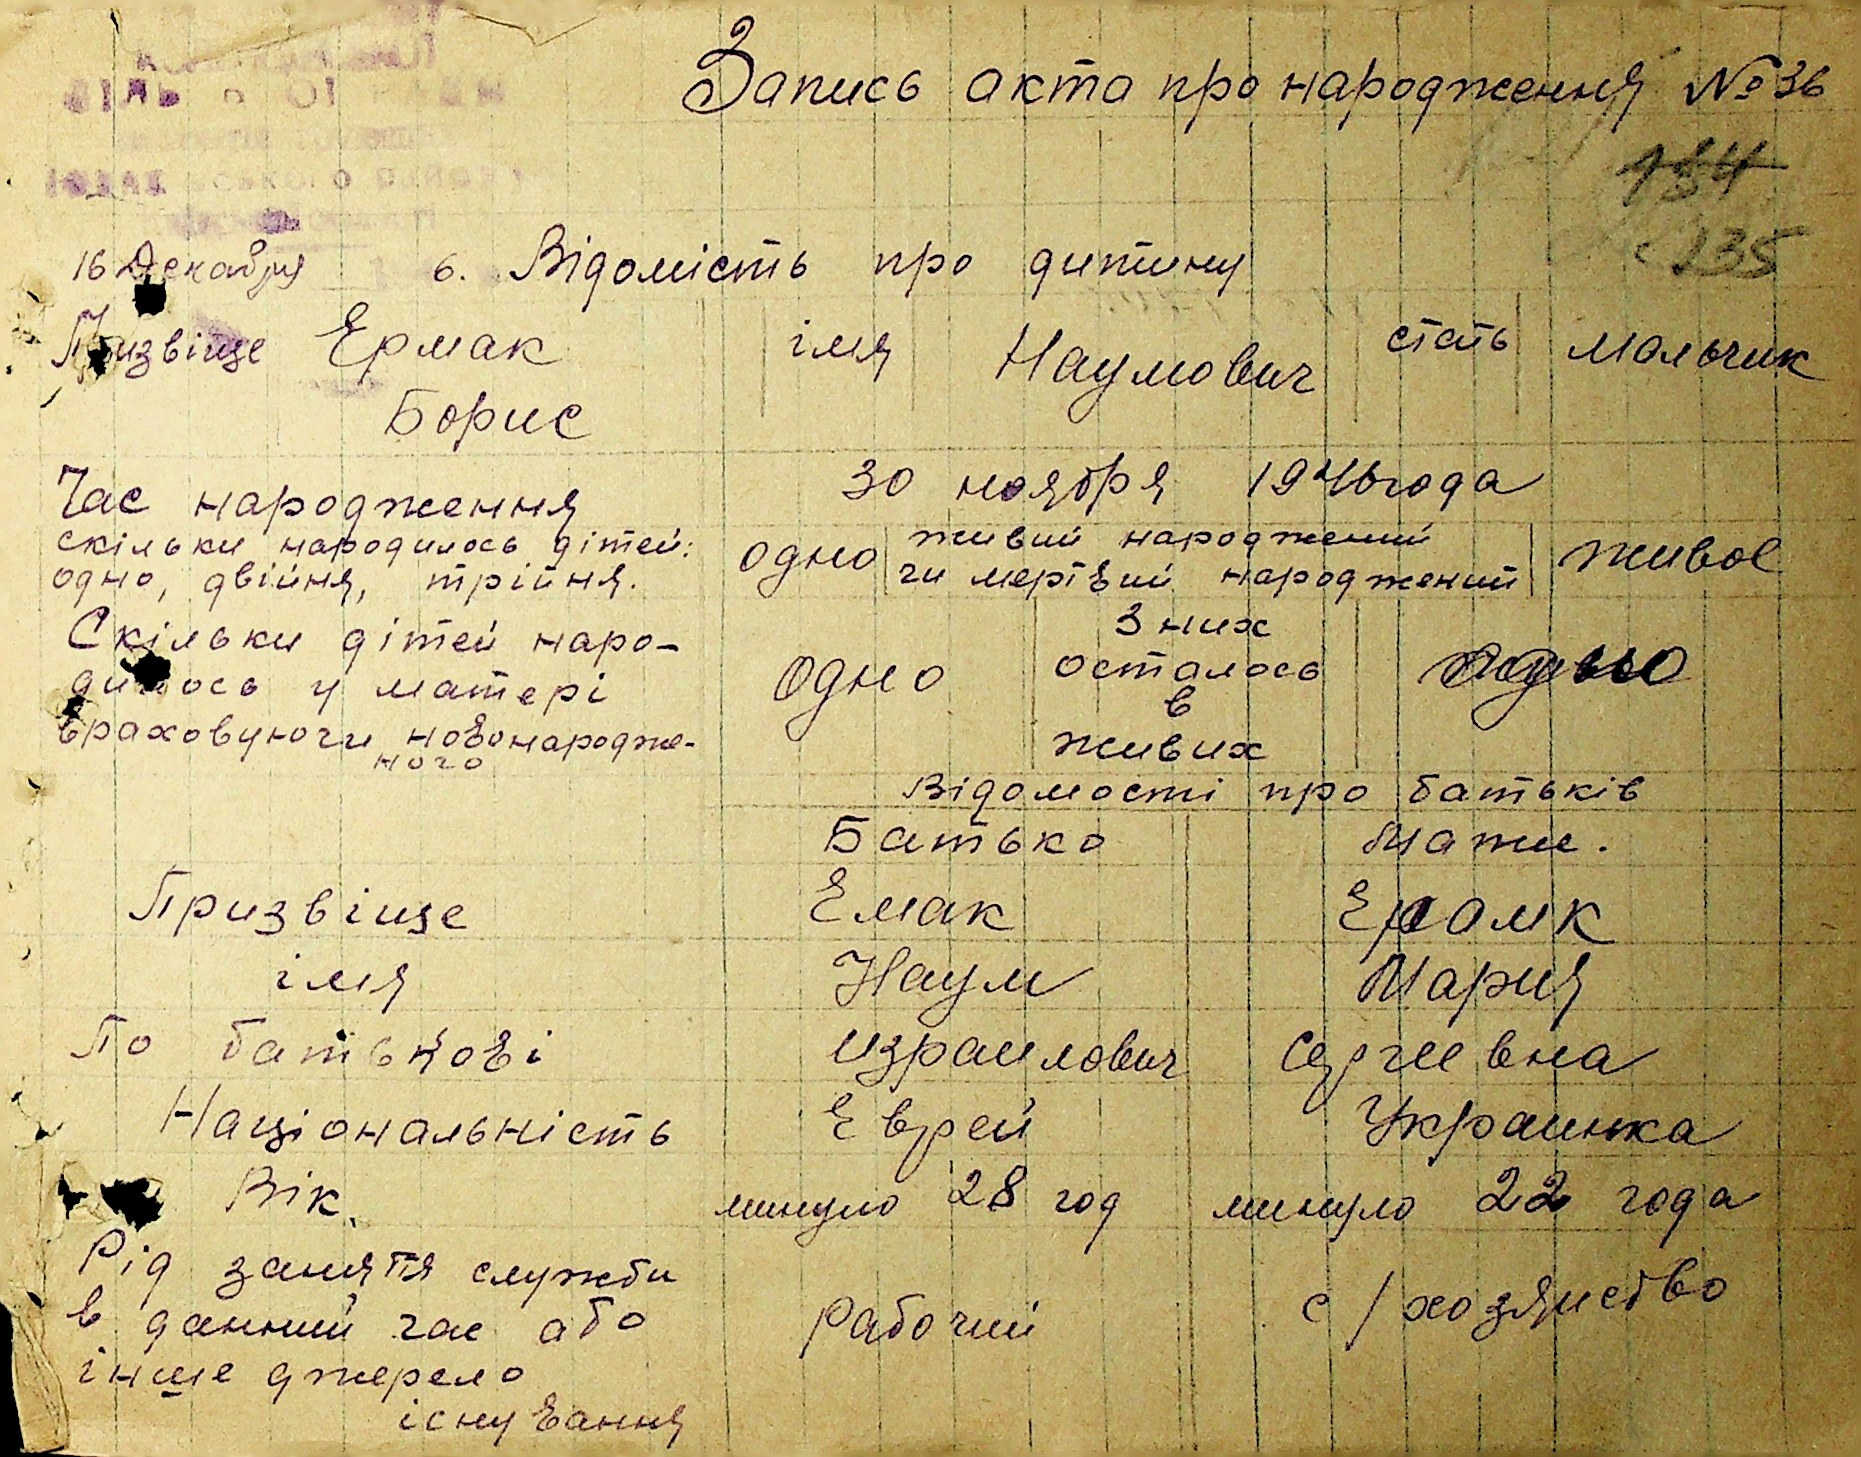 Запись акта про народження № 36
134
135
16 Декабря 6. Відомість про дитину
Призвіще Ермак імя Наумович стать мальчик
Борис
Час народження 30 ноября 1946 года
скільки народилось дітей: одно живий народжений живое
одно, двійня, трійня. чи мертвий народжений
Скільки дітей наро- З них
дилось у матері одно осталось одно
в
враховуючи новонародже- живих
ного
Відомості про батьків
Батько Мати.
Призвіще Емак Ерамк
імя Наум Мария
По батькові Израилович Сергиевна
Національність Еврей Украинка
Вік. минуло 28 год минуло 22 года
Рід заняття служби
в данний час або рабочий с/хозяиство
інше джерело
існування